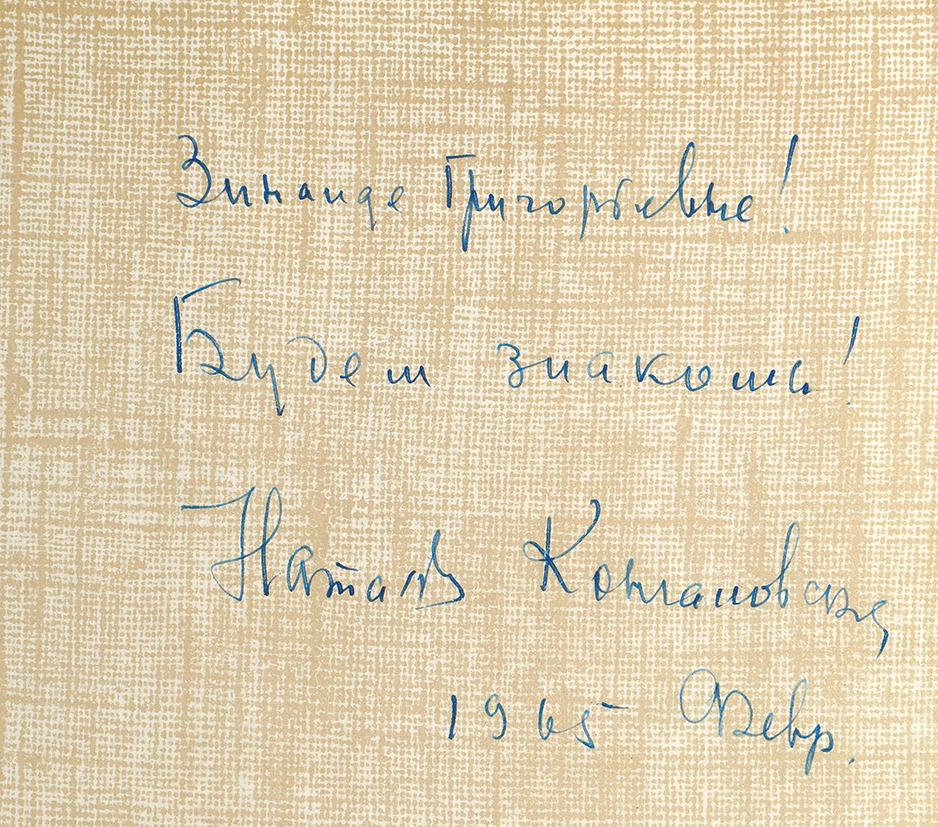 Зинаиде Григорьевне!
Будем знакомы!
Наталья Кончаловская
1965 Февр.